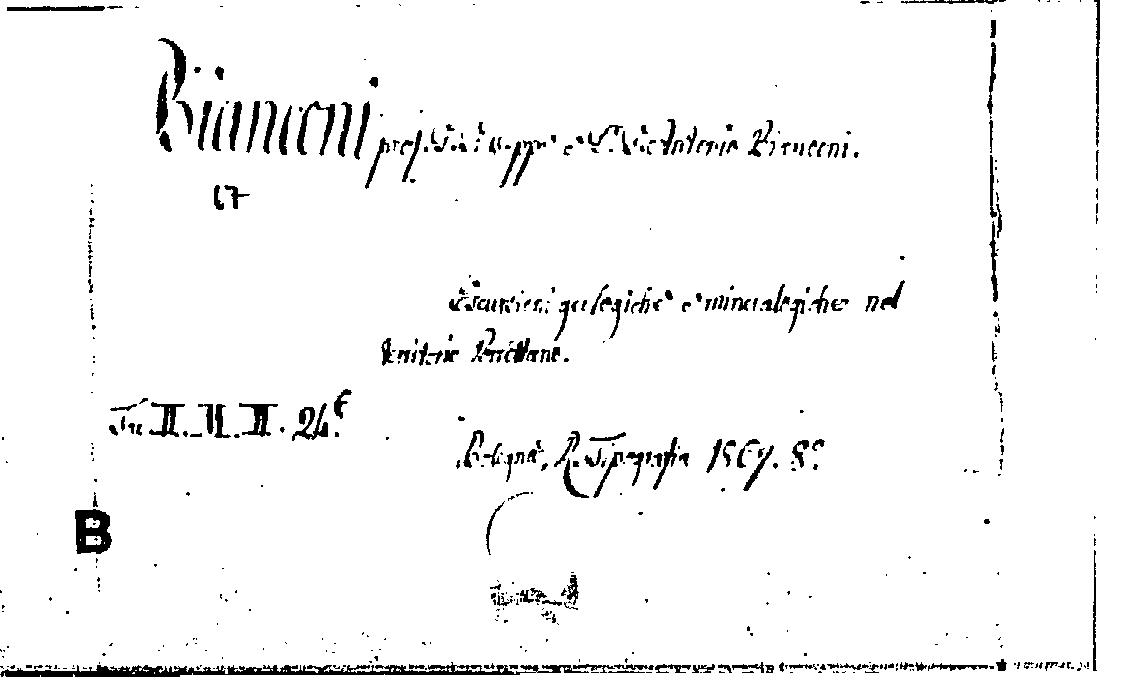 Bianconi prof. Giuseppe e Antonio Bianconi.
17
Escursioni geologiche e mineralogiche nel
territorio Porrettano.
II. VI. II. 24.
Bologna, R. Tipografia 1867. 8.º
B